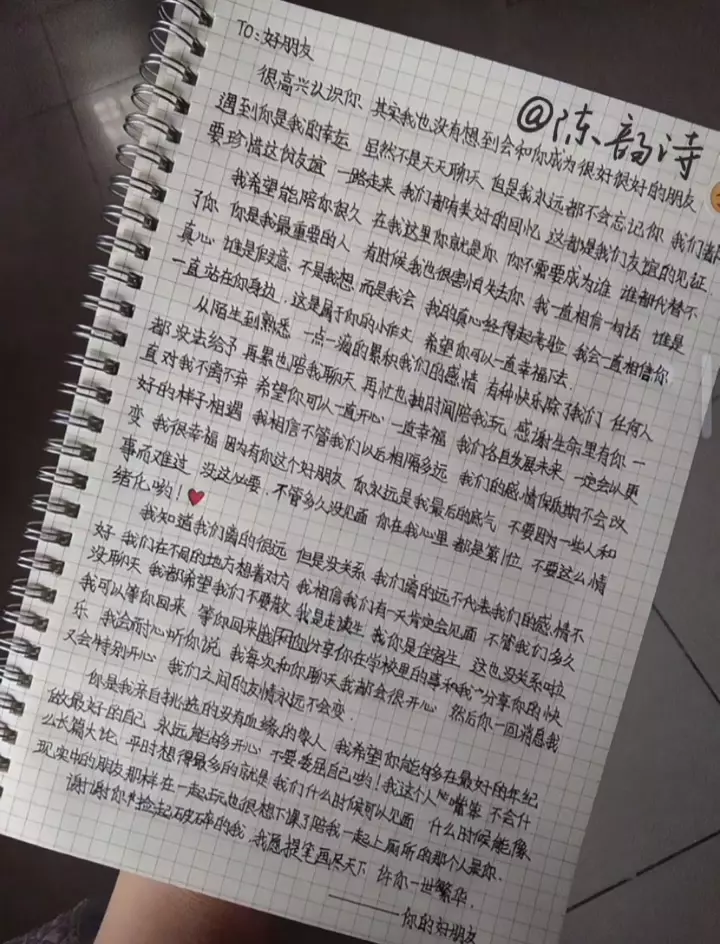 TO:好朋友
@陈韵诗
很高兴认识你 其实我也没有想到会和你成为很好很好的朋友
遇到你是我的幸运 虽然不是天天聊天 但是我永远都不会忘记你 我们都
要珍惜这份友谊 一路走来 我们都有美好的回忆 这都是我们友谊的见证.
我希望能陪你很久 在我这里你就是你 你不需要成为谁 谁都代替不
了你 你是我最重要的人 有时候我也很害怕失去你 我一直相信一句话 谁是
真心 谁是假意 不是我想 而是我会 我的真心经得起考验 我会一直相信你
一直站在你身边. 这是属于你的小作文 希望你可以一直幸福下去.
从陌生到熟悉 一点一滴的累积我们的感情 有种快乐除了我们 任何人
都没法给予 再累也陪我聊天 再忙也抽时间陪我玩 感谢生命里有你 一
直对我不离不弃 希望你可以一直开心 一直幸福 我们各自发展未来 一定会以更
好的样子相遇 我相信不管我们以后相隔多远 我们的感情保质期不会改
变 我很幸福 因为有你这个好朋友 你永远是我最后的底气 不要因为一些人和
事而难过 没这必要. 不管多久没见面 你在我心里 都是第1位 不要这么情
绪化哟!
我知道我们离的很远 但是没关系 我们离的远不代表我们的感情不
好 我们在不同的地方想着对方 我相信我们有一天肯定会见面 不管我们多久
没聊天 我都希望我们不要散 我是走读生 你是住宿生 这也没关系啦
我可以等你回来 等你回来分享你在学校里的事和我 分享你的快
乐 我会耐心听你说 我每次和你聊天我都会很开心 然后你一回消息我
又会特别开心 我们之间的友情永远不会变.
你是我亲自挑选的没有血缘的家人 我希望你能够在最好的年纪
做最好的自己 永远能够开心 不要委屈自己哟! 我这个人 嘴笨 不会什
么长篇大论 平时想得最多的就是我们什么时候可以见面 什么时候能像
现实中的朋友那样在一起玩 也很想下课了陪我一起上厕所的那个人是你.
谢谢你 捡起破碎的我 我愿提笔画尽天下 许你一世繁华.
———你的好朋友